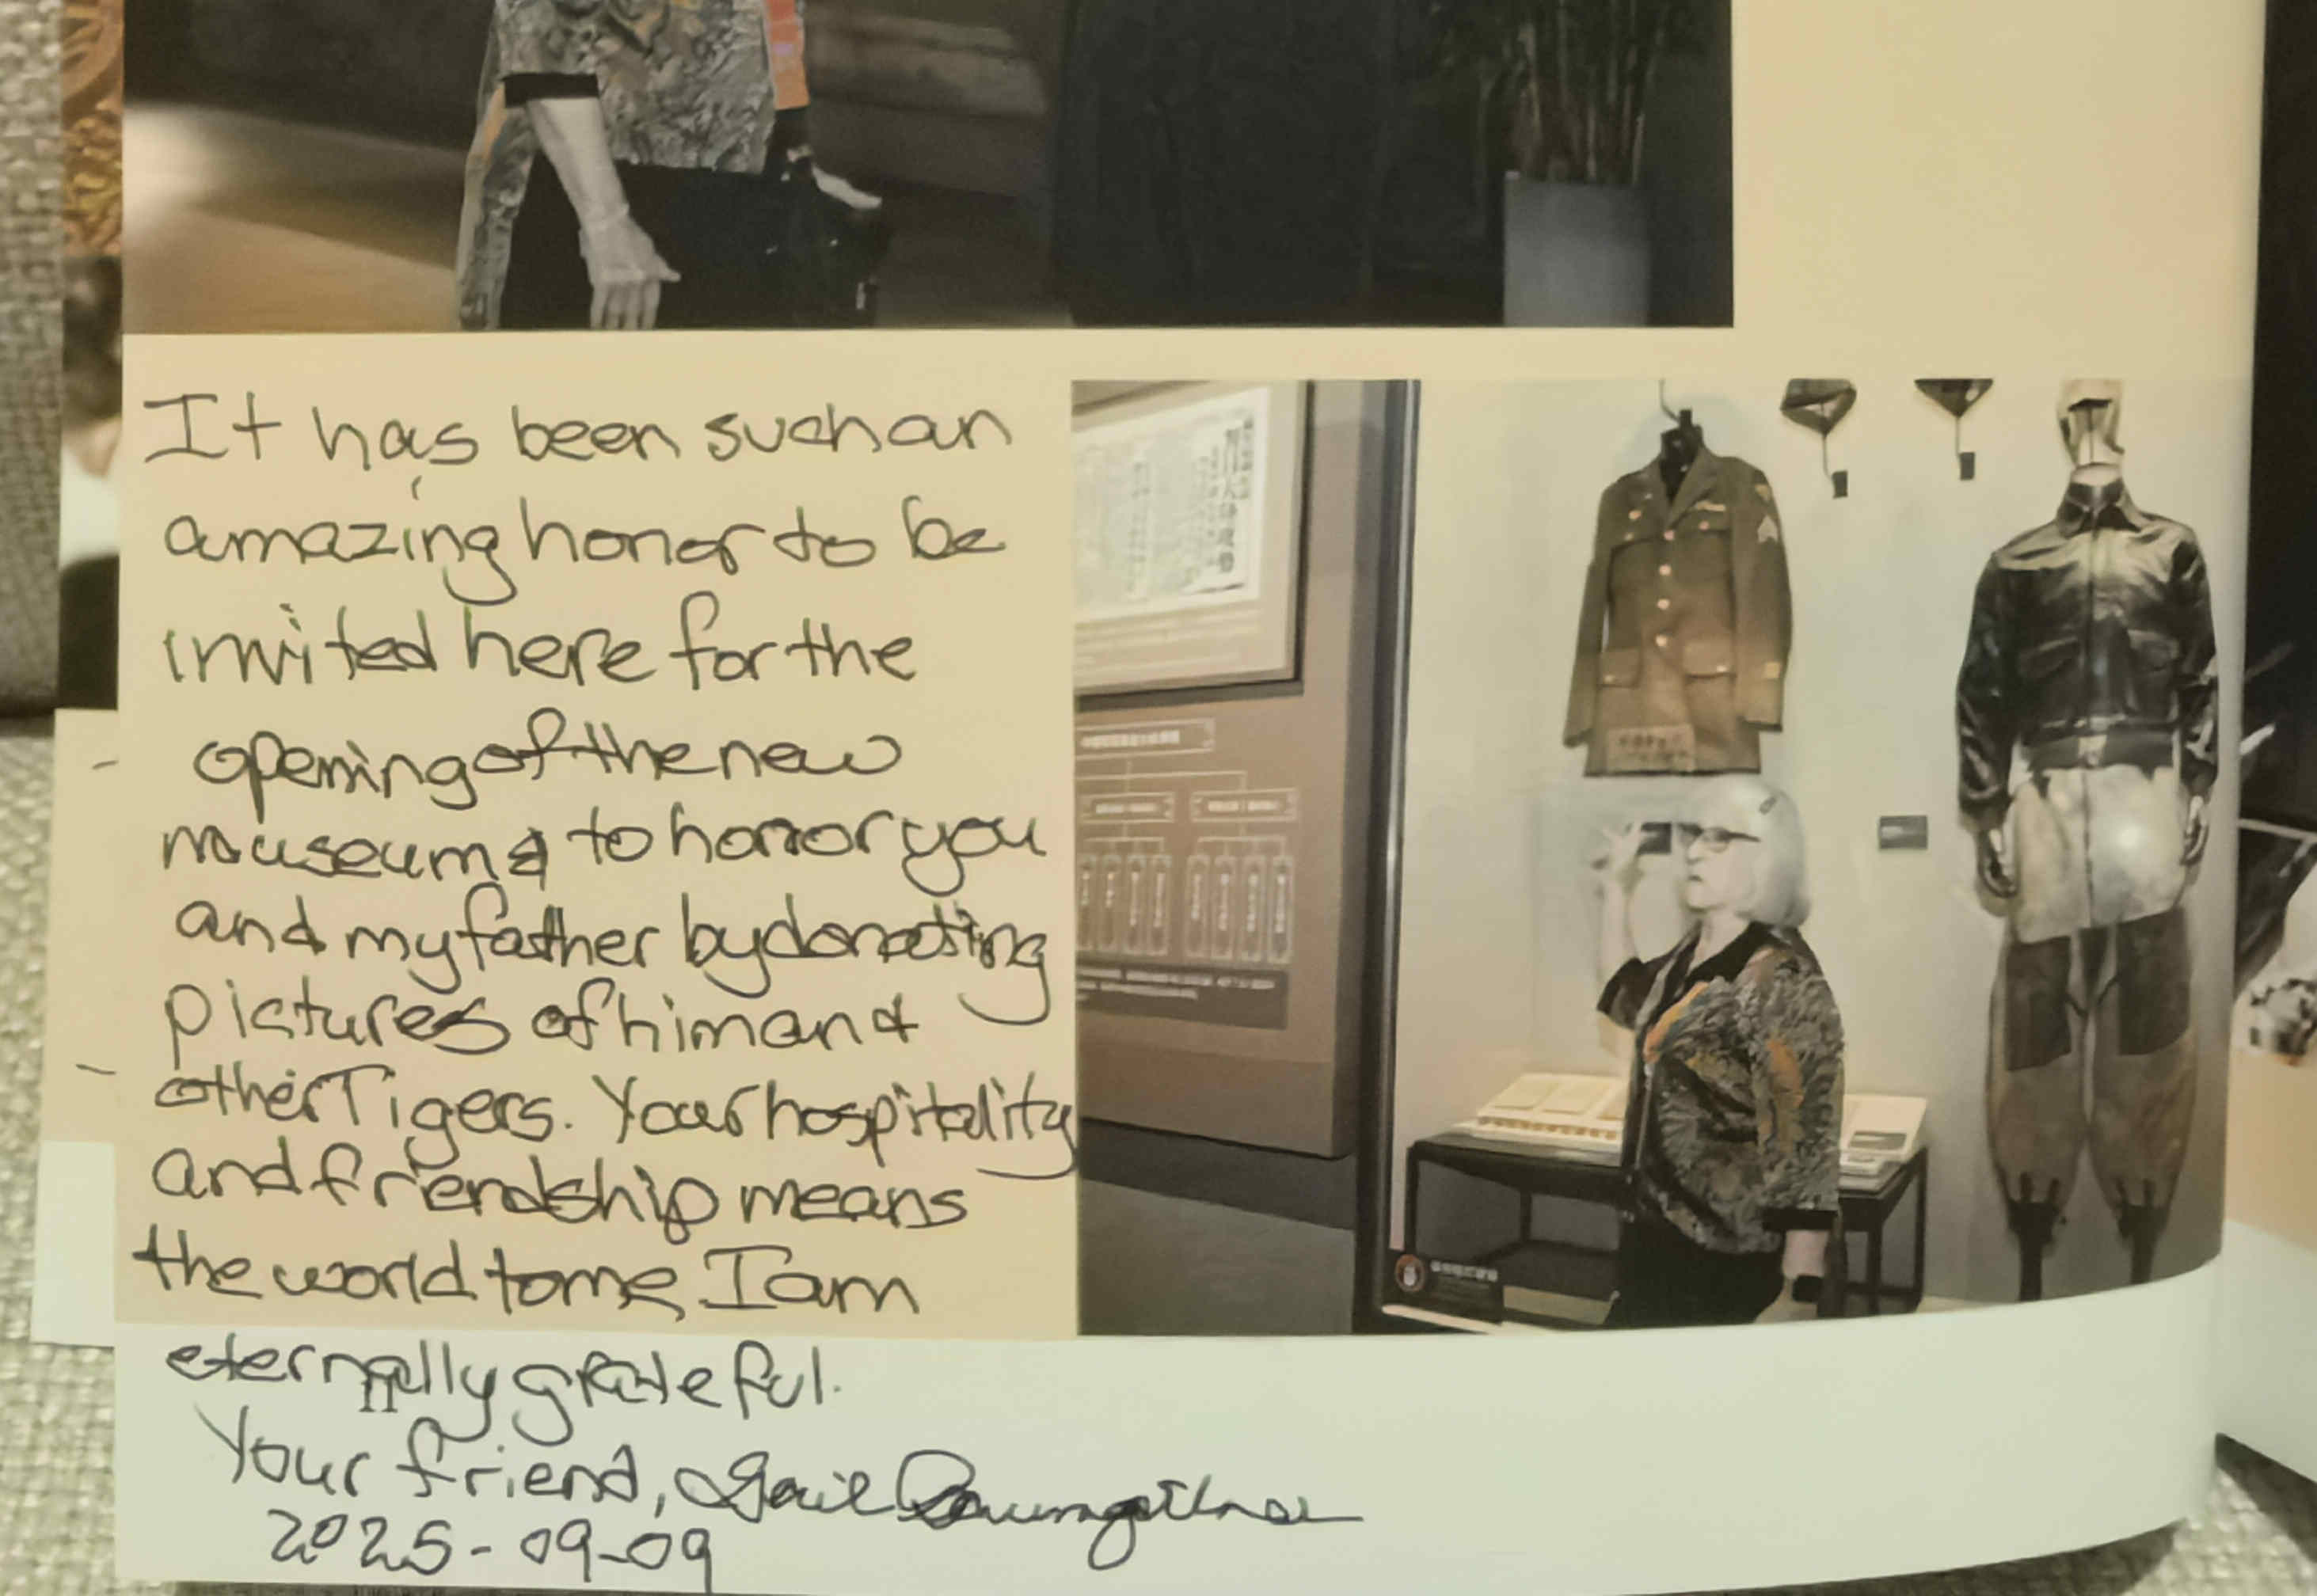 It has been such an
amazing honor to be
invited here for the
opening of the new
museum & to honor you
and my father by donating
pictures of him and
other Tigers. Your hospitality
and friendship means
the world to me, I am
eternally grateful.
Your friend, Gail Baumgartner
2025-09-09